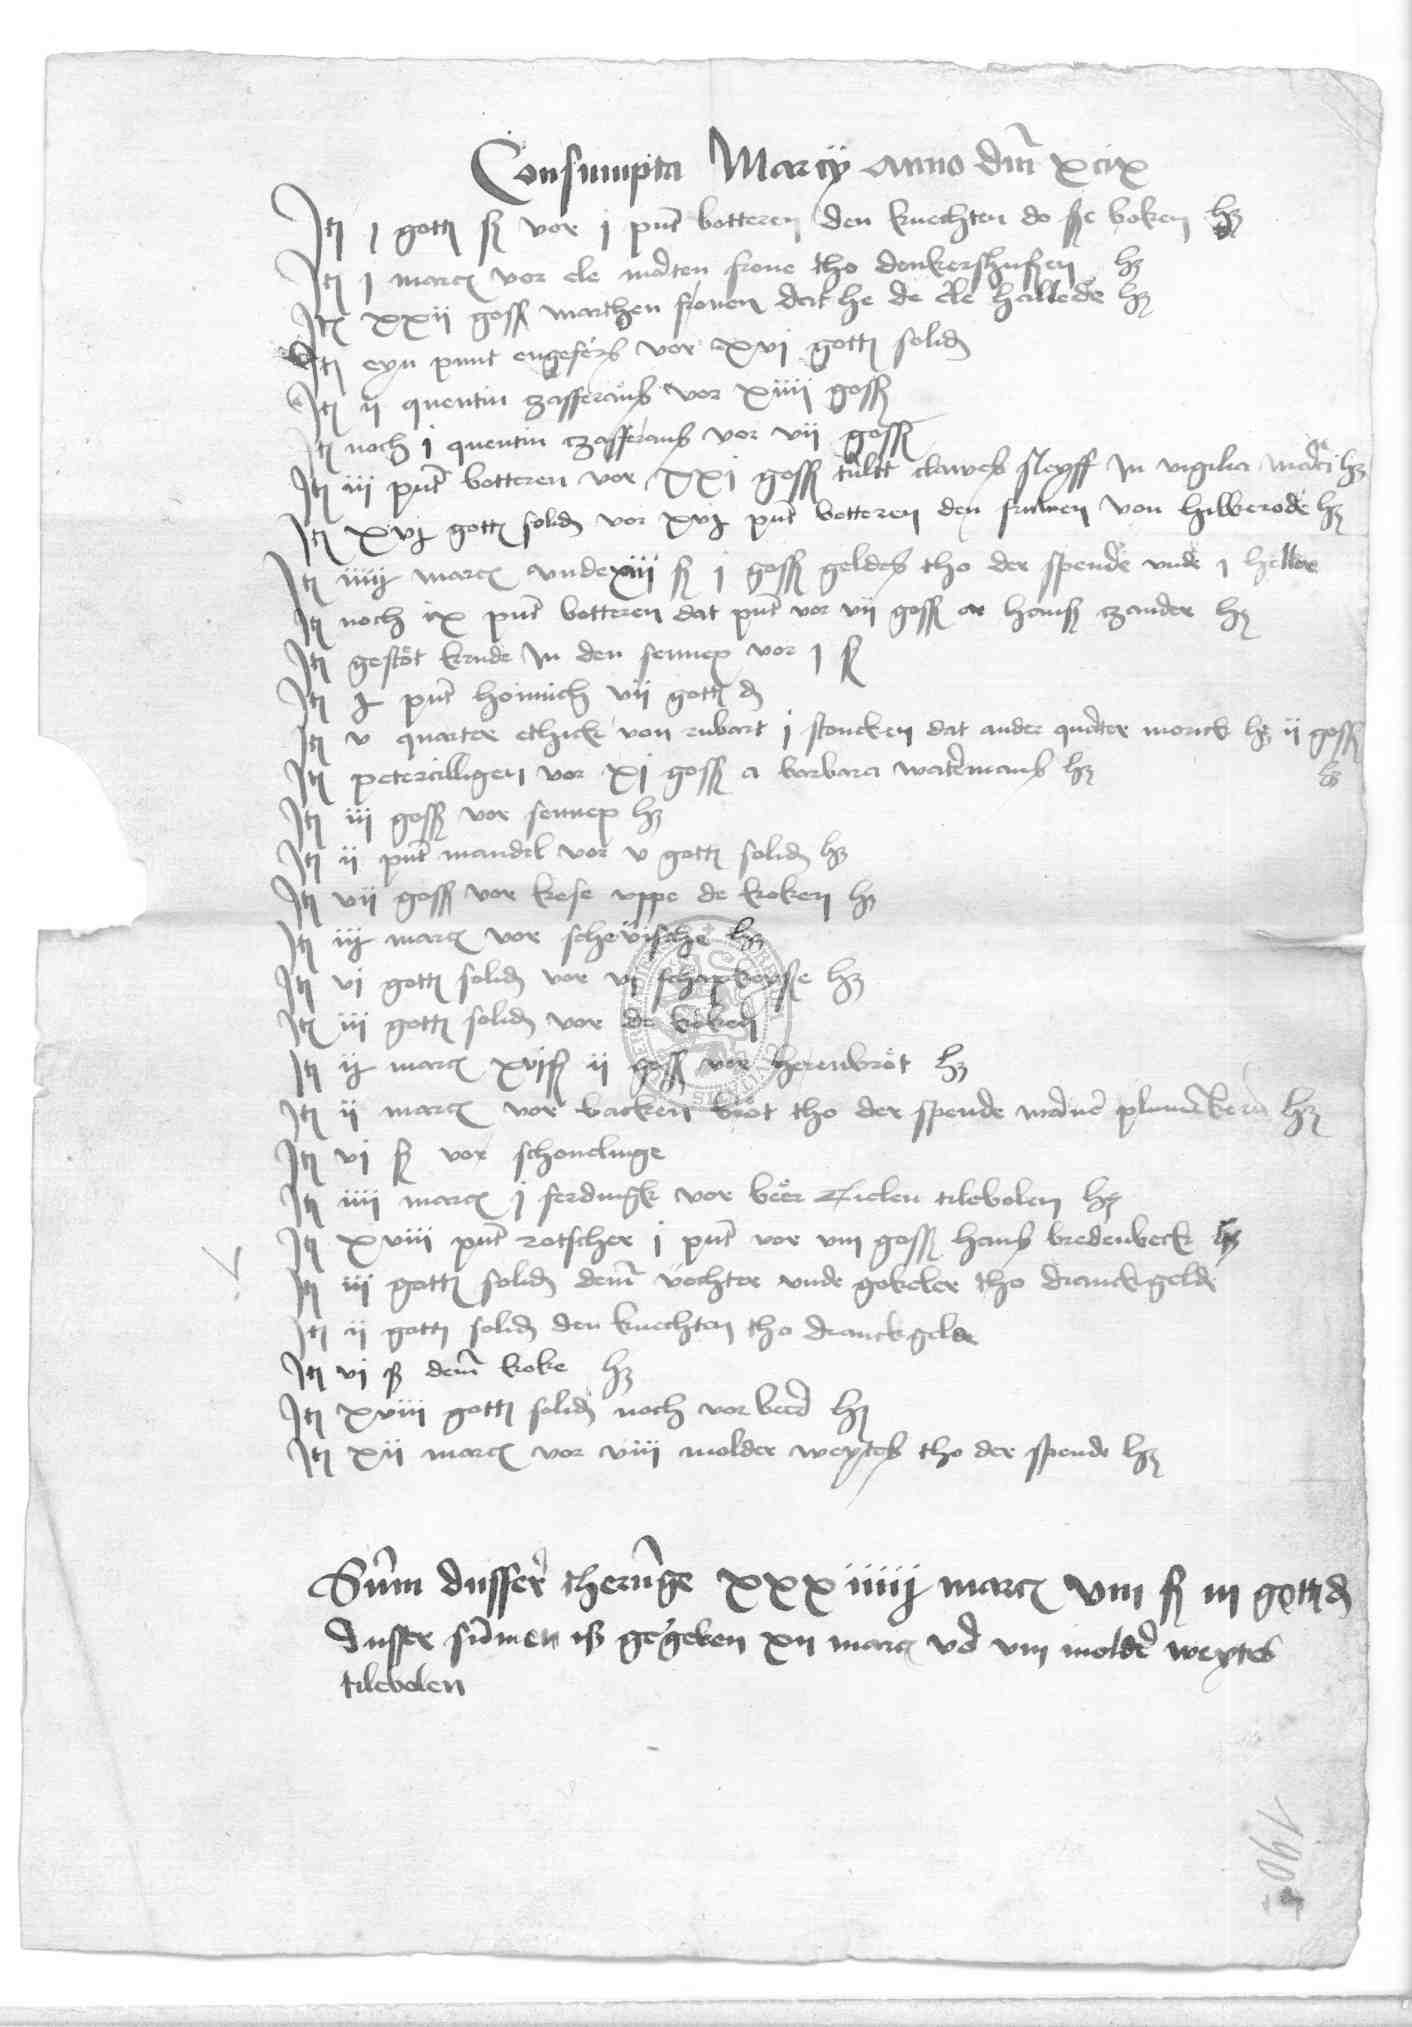 Consumpta Marcij anno dm̄ xcix
Itē j gottē ß vor j punt botteren den knechten do se boken hꝫ
Itē j marcē vor ele marten frone tho denkershusen hꝫ
Itē xxij gosß marthen fronen dat he de ele hallede hꝫ
Itē eyn punt engefers vor xvj gottē solid
Itē ij quentin czafferans vor xiiij gosß
Itē noch j quentin czafferans vor vij gosß
Itē iij punt botteren vor xxj gosß clawes sleyff in vigilia hꝫ
Itē gottē solid vor punt botteren den fruwen von hilwerode hꝫ
Itē marcē unde xiij ß j gosß geldes tho der spende unde j heller
Itē noch ix punt botteren dat punt vor vij gosß hans czander hꝫ
Itē gestot krude in den sennep vor j ß
Itē punt honnich vij gottē d
Itē v quarter ethick von rubart j stoucken dat ander quarter morick hꝫ ij gosß
Itē petercilligen vor xj gosß a barbara watermans hꝫ hꝫ
Itē iij gosß vor sennep hꝫ
Itē ij punt mandel vor v gottē solid hꝫ
Itē vij gosß vor kese uppe de koken hꝫ
Itē marcē vor hꝫ
Itē vj gottē solid vor vj schapkeyse hꝫ
Itē iij gottē solid vor de koken
Itē marcē xvj ß ij gosß vor herenbrot hꝫ
Itē ij marcē vor backen brot tho der spende hꝫ
Itē vj ß vor
Itē iiij marcē j ferdingk vor beer tilen tilebolen hꝫ
Itē xviij punt rotscher j punt vor viij gosß hans bredenbeck hꝫ
Itē iij gottē solid dem vochter unde gokeler tho dranckgelde
Itē ij gottē solid den knechten tho dranckgelde
Itē vj ß dem koke hꝫ
Itē xviij gottē solid noch vor beer hꝫ
Itē xij marcē vor viij molder weytes tho der spende hꝫ
Sum̄ dusser theringe marcē viij ß iij gottē d
dusser summen is gegeven xij marcē vor viij molder weytes
tilebolen
190